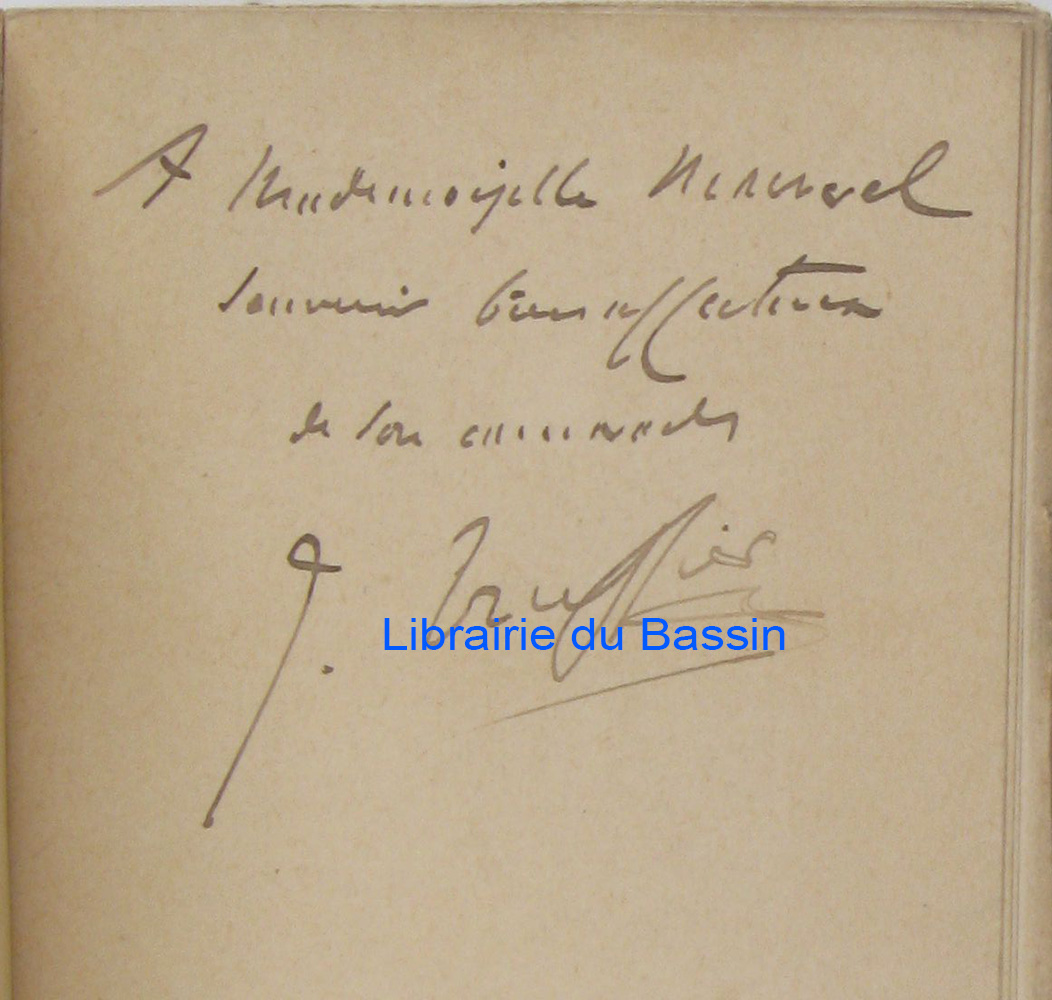 A Mademoiselle
souvenir bien affectueux
de son camarade
J. Truffier
Librairie du Bassin